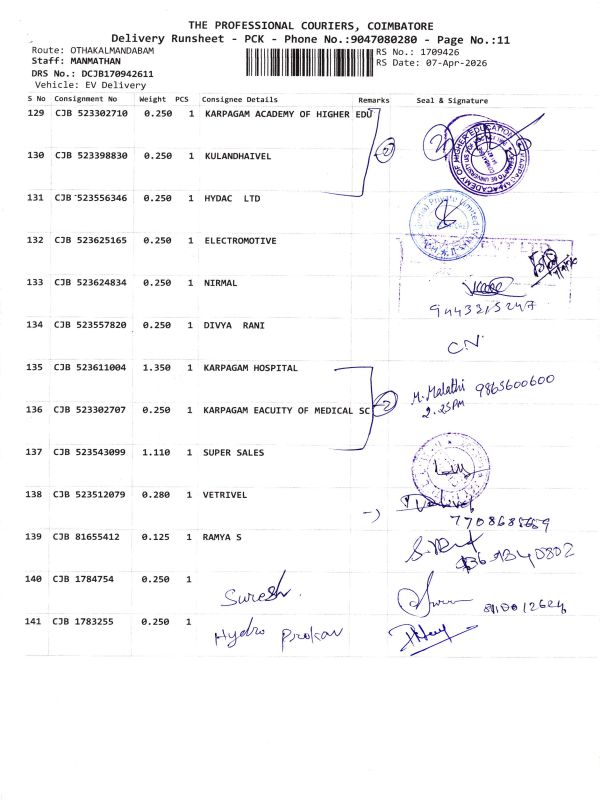 THE PROFESSIONAL COURIERS, COIMBATORE
Delivery Runsheet - PCK - Phone No.:9047080280 - Page No.:11
Route: OTHAKALMANDABAM
RS No.: 1709426
Staff: MANMATHAN
RS Date: 07-Apr-2026
DRS No.: DCJB170942611
Vehicle: EV Delivery
S No Consignment No Weight PCS Consignee Details Remarks Seal & Signature
129 CJB 523302710 0.250 1 KARPAGAM ACADEMY OF HIGHER EDU
130 CJB 523398830 0.250 1 KULANDHAIVEL
2
131 CJB 523556346 0.250 1 HYDAC LTD
132 CJB 523625165 0.250 1 ELECTROMOTIVE
133 CJB 523624834 0.250 1 NIRMAL
9443215247
134 CJB 523557820 0.250 1 DIVYA RANI
C.N.
135 CJB 523611004 1.350 1 KARPAGAM HOSPITAL
M. Malathi 9865600600
136 CJB 523302707 0.250 1 KARPAGAM EACUITY OF MEDICAL SC 2
2.25PM
137 CJB 523543099 1.110 1 SUPER SALES
138 CJB 523512079 0.280 1 VETRIVEL
139 CJB 81655412 0.125 1 RAMYA S
140 CJB 1784754 0.250 1
Suresh.
141 CJB 1783255 0.250 1
Hydro Prokav